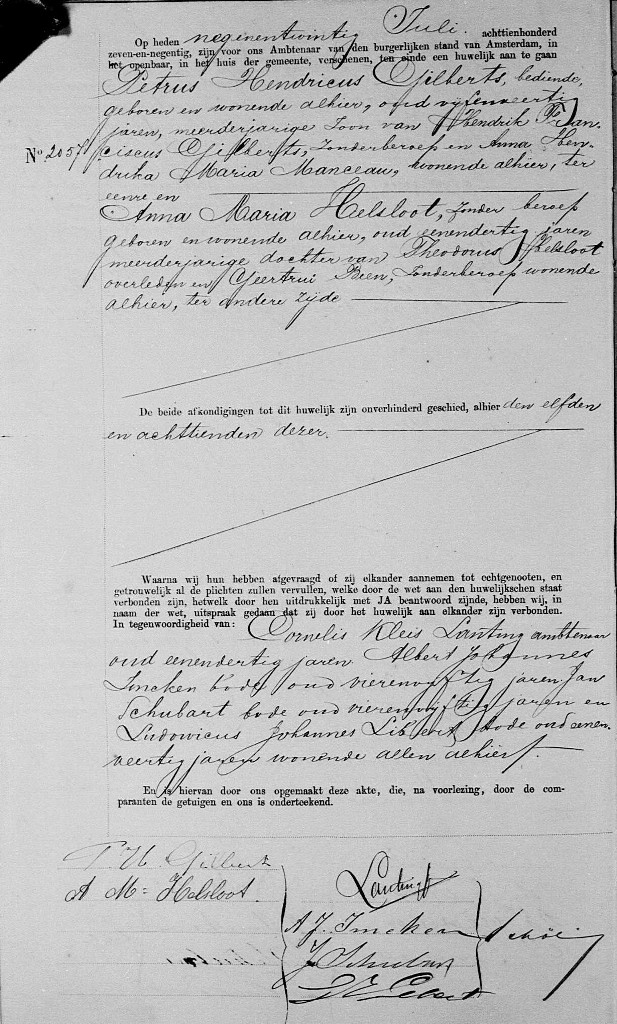 Op heden negenentwintig Juli. achttienhonderd
zeven-en-negentig, zijn voor ons Ambtenaar van den burgerlijken stand van Amsterdam, in
het openbaar, in het huis der gemeente, verschenen, ten einde een huwelijk aan te gaan
Petrus Hendricus Gilberts, bediende,
geboren en wonende alhier, oud vijfenveertig
jaren, meerderjarige Zoon van Hendrik Fran-
No. 2057 ciscus Gilberts, Zonderberoep en Anna Hen-
drika Maria Manceau, wonende alhier, ter
eenre en
Anna Maria Helsloot, zonder beroep
geboren en wonende alhier, oud eenendertig jaren
meerderjarige dochter van Theodorus Helsloot
overleden en Geertrui Been, Zonderberoep wonende
alhier, ter andere zijde
De beide afkondigingen tot dit huwelijk zijn onverhinderd geschied, alhier den elfden
en achttienden dezer.
Waarna wij hun hebben afgevraagd of zij elkander aannemen tot echtgenooten, en
getrouwelijk al de plichten zullen vervullen, welke door de wet aan den huwelijkschen staat
verbonden zijn, hetwelk door hen uitdrukkelijk met JA beantwoord zijnde, hebben wij, in
naam der wet, uitspraak gedaan dat zij door het huwelijk aan elkander zijn verbonden.
In tegenwoordigheid van: Cornelis Kleis Lanting ambtenaar
oud eenendertig jaren Albert Johannes
Imcken bode oud vierenvijftig jaren Jan
Schubart bode oud vierenvijftig jaren en
Ludowicus Johannes Libert bode oud eenen-
veertig jaren wonende allen alhier.
En is hiervan door ons opgemaakt deze akte, die, na voorlezing, door de com-
paranten de getuigen en ons is onderteekend.
P H Gilberts
A M= Helsloot.
Lanting
A J. Imcken
J Schubart